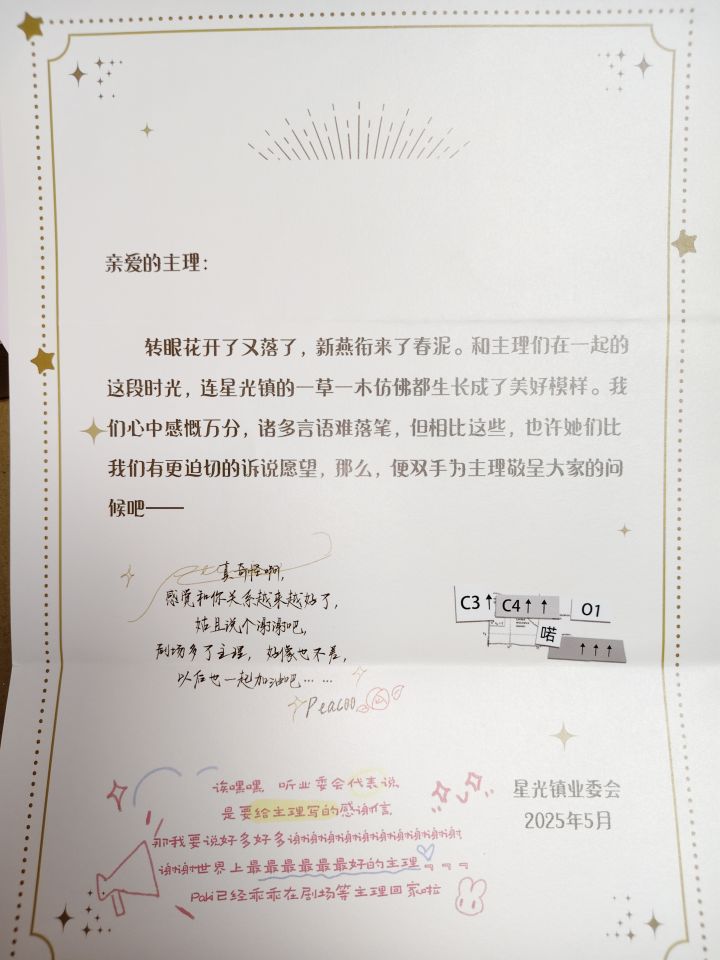 亲爱的主理：
转眼花开了又落了，新燕衔来了春泥。和主理们在一起的
这段时光，连星光镇的一草一木仿佛都生长成了美好模样。我
们心中感慨万分，诸多言语难落笔，但相比这些，也许她们比
我们有更迫切的诉说愿望，那么，便双手为主理敬呈大家的问
候吧——
真奇怪啊，
感觉和你关系越来越好了，
姑且说个谢谢吧。
剧场多了主理，好像也不差，
以后也一起加油吧……
Peacoo
C3↑ C4↑↑ O1
喏 ↑↑↑
诶嘿嘿 听业委会代表说
是要给主理写的感谢信
那我要说好多好多谢谢谢谢谢谢谢谢谢谢谢谢
谢谢世界上最最最最最最好的主理
Poki已经乖乖在剧场等主理回家啦
星光镇业委会
2025年5月